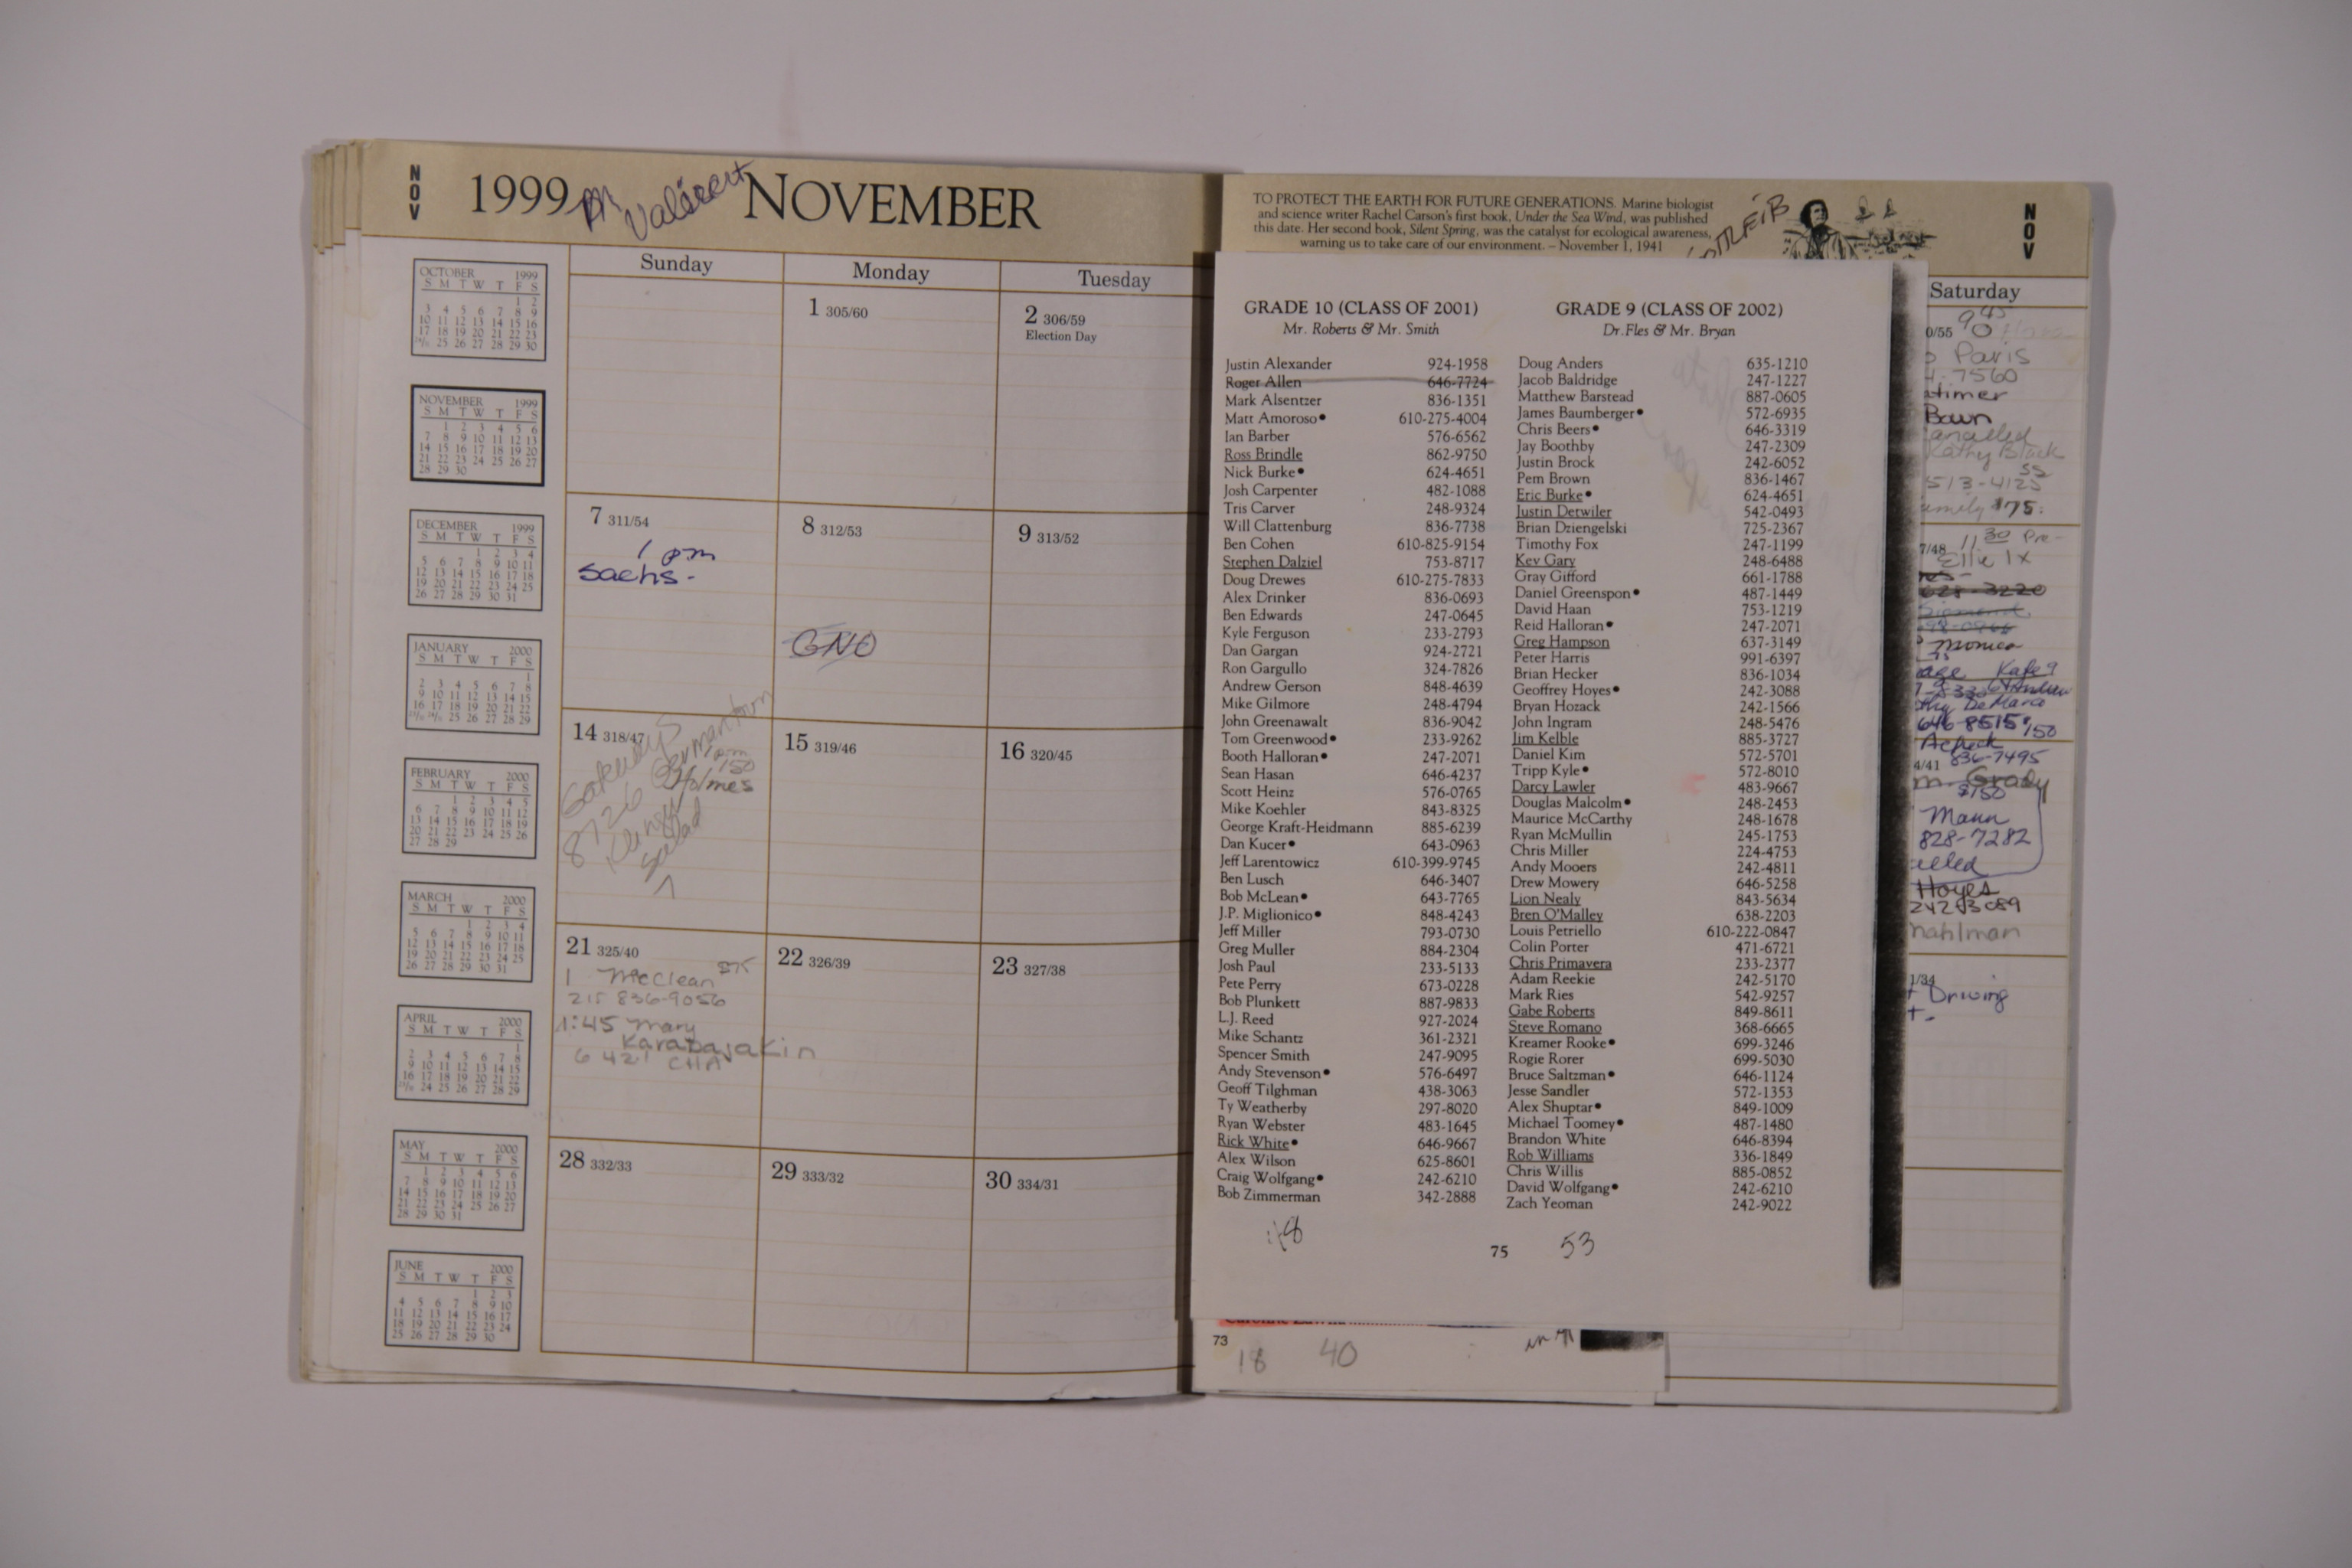 NOV
1999 NOVEMBER
OCTOBER 1999
S M T W T F S
1 2
3 4 5 6 7 8 9
10 11 12 13 14 15 16
17 18 19 20 21 22 23
24/31 25 26 27 28 29 30
NOVEMBER 1999
S M T W T F S
1 2 3 4 5 6
7 8 9 10 11 12 13
14 15 16 17 18 19 20
21 22 23 24 25 26 27
28 29 30
DECEMBER 1999
S M T W T F S
1 2 3 4
5 6 7 8 9 10 11
12 13 14 15 16 17 18
19 20 21 22 23 24 25
26 27 28 29 30 31
JANUARY 2000
S M T W T F S
1
2 3 4 5 6 7 8
9 10 11 12 13 14 15
16 17 18 19 20 21 22
23/30 24/31 25 26 27 28 29
FEBRUARY 2000
S M T W T F S
1 2 3 4 5
6 7 8 9 10 11 12
13 14 15 16 17 18 19
20 21 22 23 24 25 26
27 28 29
MARCH 2000
S M T W T F S
1 2 3 4
5 6 7 8 9 10 11
12 13 14 15 16 17 18
19 20 21 22 23 24 25
26 27 28 29 30 31
APRIL 2000
S M T W T F S
1
2 3 4 5 6 7 8
9 10 11 12 13 14 15
16 17 18 19 20 21 22
23/30 24 25 26 27 28 29
MAY 2000
S M T W T F S
1 2 3 4 5 6
7 8 9 10 11 12 13
14 15 16 17 18 19 20
21 22 23 24 25 26 27
28 29 30 31
JUNE 2000
S M T W T F S
1 2 3
4 5 6 7 8 9 10
11 12 13 14 15 16 17
18 19 20 21 22 23 24
25 26 27 28 29 30
Sunday Monday Tuesday
1 305/60
2 306/59
Election Day
7 311/54
1 pm
Sachs -
8 312/53
GNO
9 313/52
14 318/47
Germantown
8726
1pm
150
Holmes
salad
15 319/46
16 320/45
21 325/40
1 McClean $75
215 836-9056
1:45 Mary
Karabajakin
6421 CHA
22 326/39
23 327/38
28 332/33
29 333/32
30 334/31
TO PROTECT THE EARTH FOR FUTURE GENERATIONS. Marine biologist
and science writer Rachel Carson's first book, Under the Sea Wind, was published
this date. Her second book, Silent Spring, was the catalyst for ecological awareness,
warning us to take care of our environment. – November 1, 1941
NOV
GRADE 10 (CLASS OF 2001)
Mr. Roberts & Mr. Smith
Justin Alexander 924-1958
Roger Allen 646-7724
Mark Alsentzer 836-1351
Matt Amoroso• 610-275-4004
Ian Barber 576-6562
Ross Brindle 862-9750
Nick Burke• 624-4651
Josh Carpenter 482-1088
Tris Carver 248-9324
Will Clattenburg 836-7738
Ben Cohen 610-825-9154
Stephen Dalziel 753-8717
Doug Drewes 610-275-7833
Alex Drinker 836-0693
Ben Edwards 247-0645
Kyle Ferguson 233-2793
Dan Gargan 924-2721
Ron Gargullo 324-7826
Andrew Gerson 848-4639
Mike Gilmore 248-4794
John Greenawalt 836-9042
Tom Greenwood• 233-9262
Booth Halloran• 247-2071
Sean Hasan 646-4237
Scott Heinz 576-0765
Mike Koehler 843-8325
George Kraft-Heidmann 885-6239
Dan Kucer• 643-0963
Jeff Larentowicz 610-399-9745
Ben Lusch 646-3407
Bob McLean• 643-7765
J.P. Miglionico• 848-4243
Jeff Miller 793-0730
Greg Muller 884-2304
Josh Paul 233-5133
Pete Perry 673-0228
Bob Plunkett 887-9833
L.J. Reed 927-2024
Mike Schantz 361-2321
Spencer Smith 247-9095
Andy Stevenson• 576-6497
Geoff Tilghman 438-3063
Ty Weatherby 297-8020
Ryan Webster 483-1645
Rick White• 646-9667
Alex Wilson 625-8601
Craig Wolfgang• 242-6210
Bob Zimmerman 342-2888
GRADE 9 (CLASS OF 2002)
Dr.Fles & Mr. Bryan
Doug Anders 635-1210
Jacob Baldridge 247-1227
Matthew Barstead 887-0605
James Baumberger• 572-6935
Chris Beers• 646-3319
Jay Boothby 247-2309
Justin Brock 242-6052
Pem Brown 836-1467
Eric Burke• 624-4651
Justin Detwiler 542-0493
Brian Dziengelski 725-2367
Timothy Fox 247-1199
Kev Gary 248-6488
Gray Gifford 661-1788
Daniel Greenspon• 487-1449
David Haan 753-1219
Reid Halloran• 247-2071
Greg Hampson 637-3149
Peter Harris 991-6397
Brian Hecker 836-1034
Geoffrey Hoyes• 242-3088
Bryan Hozack 242-1566
John Ingram 248-5476
Jim Kelble 885-3727
Daniel Kim 572-5701
Tripp Kyle• 572-8010
Darcy Lawler 483-9667
Douglas Malcolm• 248-2453
Maurice McCarthy 248-1678
Ryan McMullin 245-1753
Chris Miller 224-4753
Andy Mooers 242-4811
Drew Mowery 646-5258
Lion Nealy 843-5634
Bren O'Malley 638-2203
Louis Petriello 610-222-0847
Colin Porter 471-6721
Chris Primavera 233-2377
Adam Reekie 242-5170
Mark Ries 542-9257
Gabe Roberts 849-8611
Steve Romano 368-6665
Kreamer Rooke• 699-3246
Rogie Rorer 699-5030
Bruce Saltzman• 646-1124
Jesse Sandler 572-1353
Alex Shuptar• 849-1009
Michael Toomey• 487-1480
Brandon White 646-8394
Rob Williams 336-1849
Chris Willis 885-0852
David Wolfgang• 242-6210
Zach Yeoman 242-9022
48
75
53
73
18 40
Saturday
0/55
Paris
7560
Bown
Kathy Black
513-4125
$75
7/48 11 30 Pre-
Ellie 1x
628-3220
Monica
Kate 9
DeMarco
646-8515 150
836-7495
4/41
Grady
$150
Mann
828-7282
Hoyes
242-3089
1/34
Driving